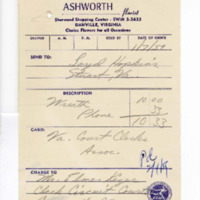 ASHWORTH
florist
Sherwood Shopping Center - SWift 2-3633
DANVILLE, VIRGINIA
Choice Flowers for all Occasions
A. M. P. M. DATE OF ORDER
1/7/59
SEND TO:
Loyd Hopkins
Stuart, Va.
DESCRIPTION
Wreath 10.00
Phone 33
10.33
CARD:
Va. Court Clerks
Assoc.
CHARGE TO
Clerk Circuit Court